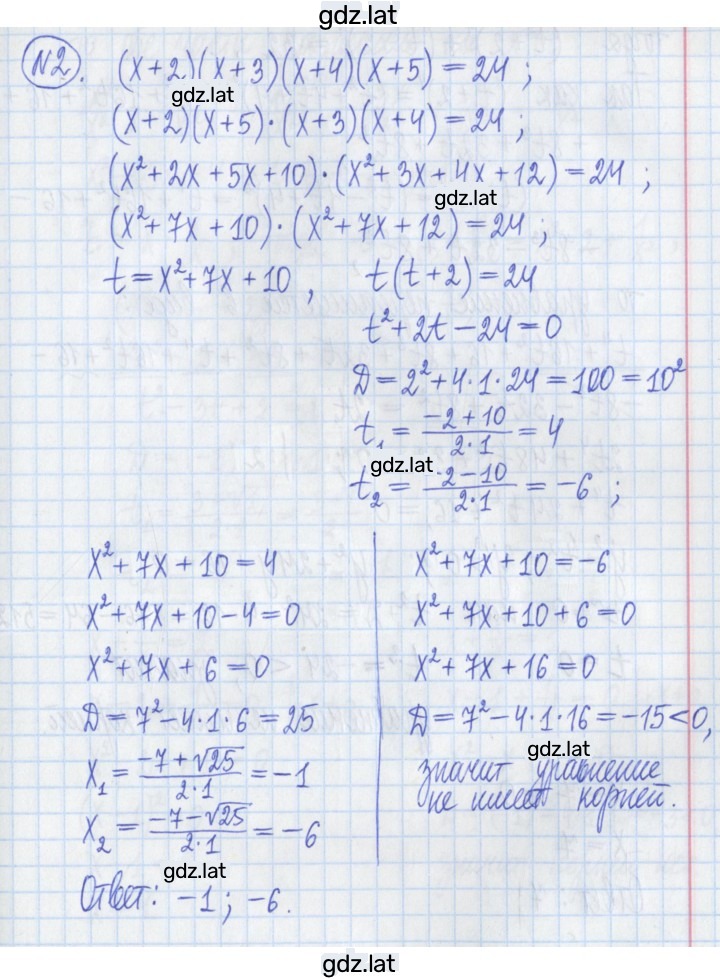 gdz.lat
№2. (x+2)(x+3)(x+4)(x+5)=24;
gdz.lat
(x+2)(x+5)·(x+3)(x+4)=24;
(x²+2x+5x+10)·(x²+3x+4x+12)=24;
gdz.lat
(x²+7x+10)·(x²+7x+12)=24;
t=x²+7x+10, t(t+2)=24
t²+2t-24=0
D=2²+4·1·24=100=10²
t₁=(-2+10)/(2·1)=4
gdz.lat
t₂=(-2-10)/(2·1)=-6;
x²+7x+10=4
x²+7x+10-4=0
x²+7x+6=0
D=7²-4·1·6=25
x₁=(-7+√25)/(2·1)=-1
x₂=(-7-√25)/(2·1)=-6
x²+7x+10=-6
x²+7x+10+6=0
x²+7x+16=0
D=7²-4·1·16=-15<0,
gdz.lat
значит уравнение
не имеет корней.
gdz.lat
Ответ: -1; -6.
gdz.lat